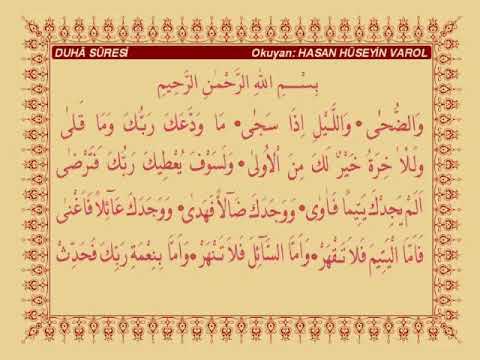 DUHÂ SÛRESİ Okuyan: HASAN HÜSEYİN VAROL
بِسْــمِ اللهِ الرَّحْمٰنِ الرَّحِيمِ
وَالضُّحٰى • وَاللَّيْلِ اِذَا سَجٰى • مَا وَدَّعَكَ رَبُّكَ وَمَا قَلٰى
وَلَلْاٰخِرَةُ خَيْرٌ لَكَ مِنَ الْاُولٰى • وَلَسَوْفَ يُعْطِيكَ رَبُّكَ فَتَرْضٰى
اَلَمْ يَجِدْكَ يَتِيمًا فَاٰوٰى • وَوَجَدَكَ ضَآلًّا فَهَدٰى • وَوَجَدَكَ عَآئِلًا فَاَغْنٰى
فَاَمَّا الْيَتِيمَ فَلَا تَقْهَرْ • وَاَمَّا السَّآئِلَ فَلَا تَنْهَرْ • وَاَمَّا بِنِعْمَةِ رَبِّكَ فَحَدِّثْ